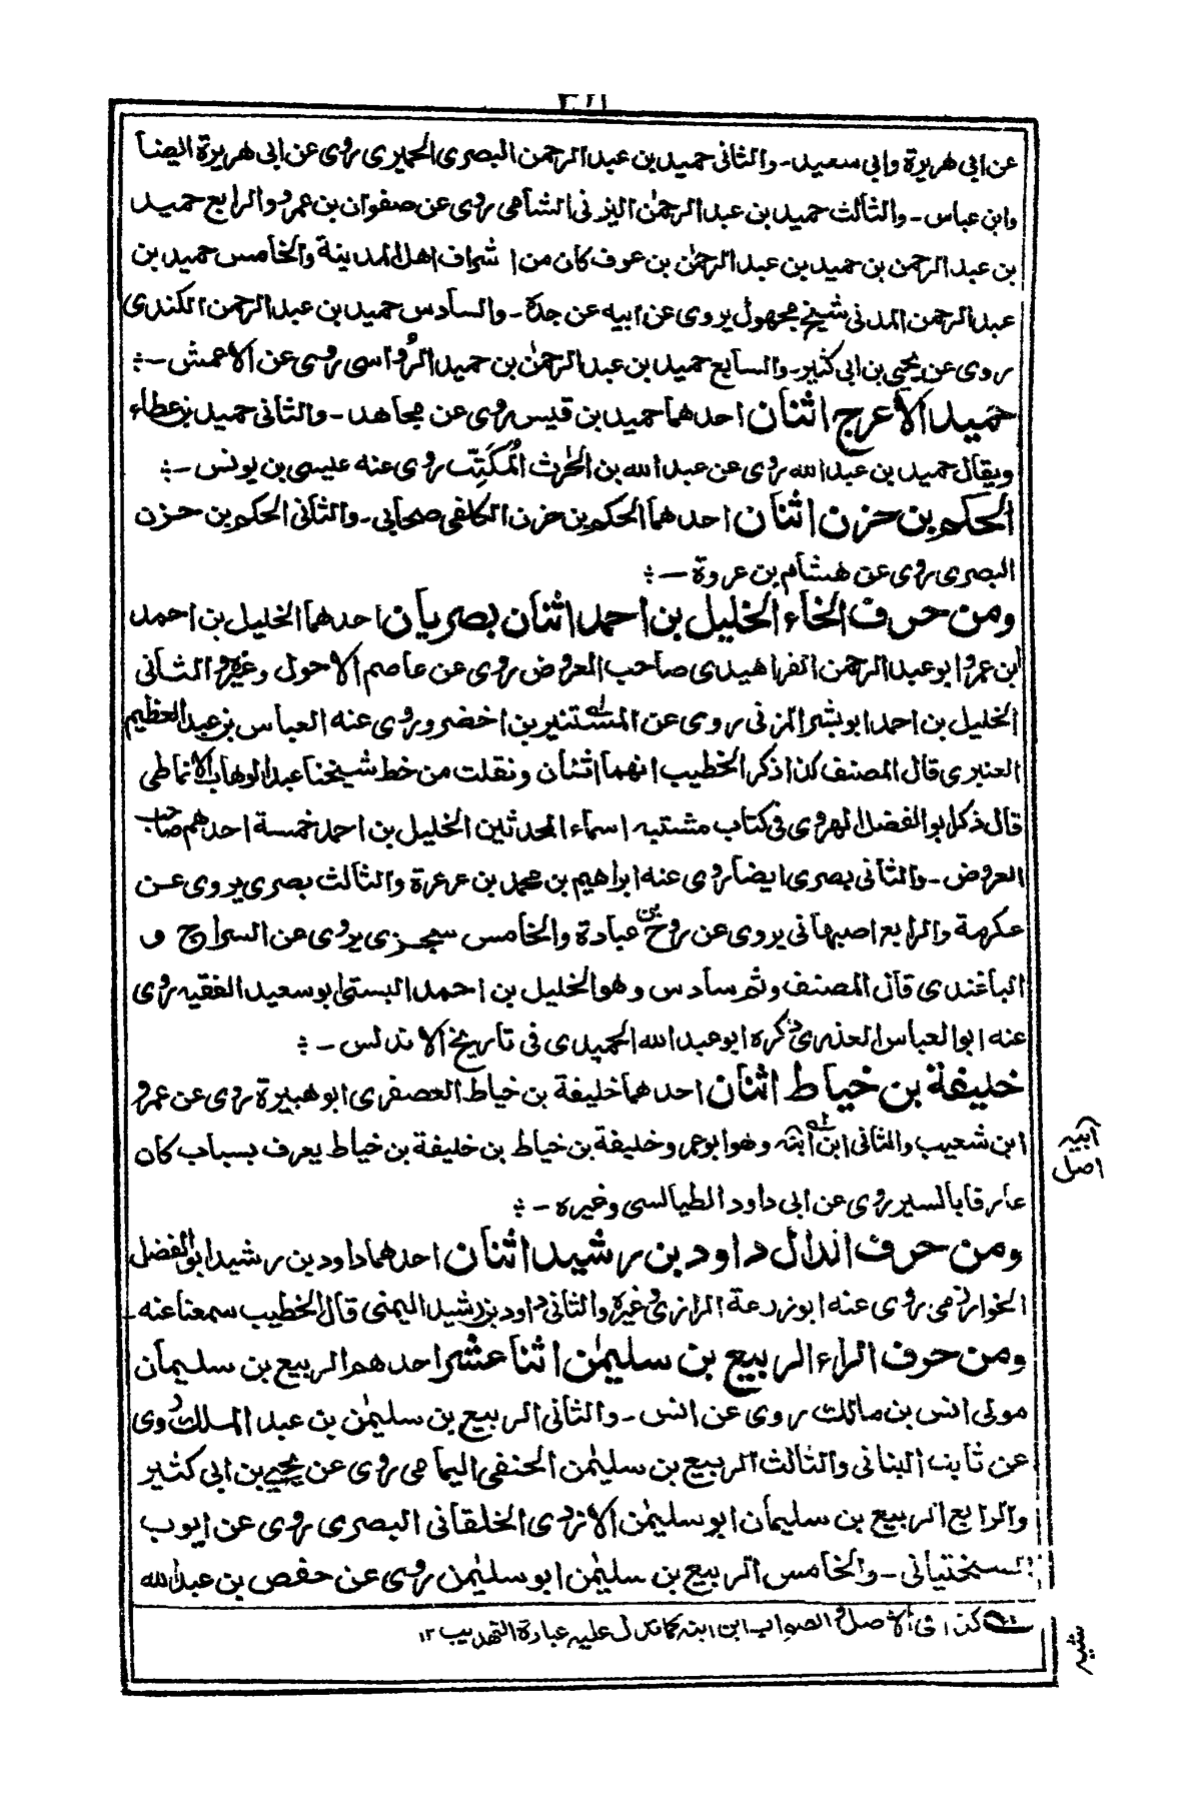 عن ابى هريرة وابى سعيد۔ والثانى حميد بن عبد الرحمن البصرى الحميرى روى عن ابى هريرة ايضا
وابن عباس۔ والثالث حميد بن عبد الرحمٰن اليزنى الشامى روى عن صفوان بن عمرو والرابع حميد
بن عبد الرحمن بن حميد بن عبد الرحمٰن بن عوف كان من اشراف اهل المدينة والخامس حميد بن
عبد الرحمن المدنى شيخ مجهول يروى عن ابيه عن جدة۔ والسادس حميد بن عبد الرحمن الكندى
روى عن يحيى بن ابى كثير۔ والسابع حميد بن عبد الرحمٰن بن حميد الرُواسى روى عن الاعمش ۔:
حميد الاعرج اثنان احدهما حميد بن قيس روى عن مجاهد۔ والثانى حميد بن عطاء
ويقال حميد بن عبد الله روى عن عبد الله بن الحٰرث المُكَتِّب روى عنه عيسى بن يونس ۔:
الحكم بن حزن اثنان احدهما الحكم بن حزن الكلفى صحابى۔ والثانى الحكم بن حزن
البصرى روى عن هشام بن عروة ۔:
ومن حرف الخاء الخليل بن احمد اثنان بصريان احدهما الخليل بن احمد
ابن عمرو ابو عبد الرحمن الفراهيدى صاحب العروض روى عن عاصم الاحول وغيره والثانى
الخليل بن احمد ابو بشر المزنى روى عن المستنير بن اخضر وروى عنه العباس بن عبد العظيم
العنبرى قال المصنف كذا ذكر الخطيب انهما اثنان ونقلت من خط شيخنا عبد الوهاب الانماطى
قال ذكر ابو الفضل الهروى فى كتاب مشتبه اسماء المحدثين الخليل بن احمد خمسة احدهم صاحب
العروض۔ والثانى بصرى ايضا روى عنه ابراهيم بن محمد بن عرعرة والثالث بصرى يروى عن
عكرمة والرابع اصبهانى يروى عن روح بن عبادة والخامس سجزى يروى عن السراج و
الباغندى قال المصنف وثم سادس وهو الخليل بن احمد البستى ابو سعيد الفقيه روى
عنه ابو العباس العذرى ذكره ابو عبد الله الحميدى فى تاريخ الاندلس ۔:
خليفة بن خياط اثنان احدهما خليفة بن خياط العصفرى ابو هبيرة روى عن عمرو
ابن شعيب والثانى ابن ابنه وهو ابو عمرو خليفة بن خياط بن خليفة بن خياط يعرف بسباب كان
عارفا بالسير روى عن ابى داود الطيالسى وغيره ۔:
ابيه
اصل
ومن حرف الدال داود بن رشيد اثنان احدهما داود بن رشيد ابو الفضل
الخوارزمى روى عنه ابو زرعة الرازى وغيره والثانى داود بن رشيد اليمنى قال الخطيب سمعنا عنه۔
ومن حرف الراء الربيع بن سليمٰن اثنا عشر احدهم الربيع بن سليمان
مولى انس بن مالك روى عن انس۔ والثانى الربيع بن سليمٰن بن عبد الملك روى
عن ثابت البنانى والثالث الربيع بن سليمٰن الحنفى اليمامى روى عن يحيى بن ابى كثير
والرابع الربيع بن سليمان ابو سليمٰن الازدى الخلقانى البصرى روى عن ايوب
السختيانى۔ والخامس الربيع بن سليمٰن ابو سليمٰن روى عن حفص بن عبد الله
كذا فى الاصل والصواب ابن ابنه كما تدل عليه عبارة التهذيب ١٢